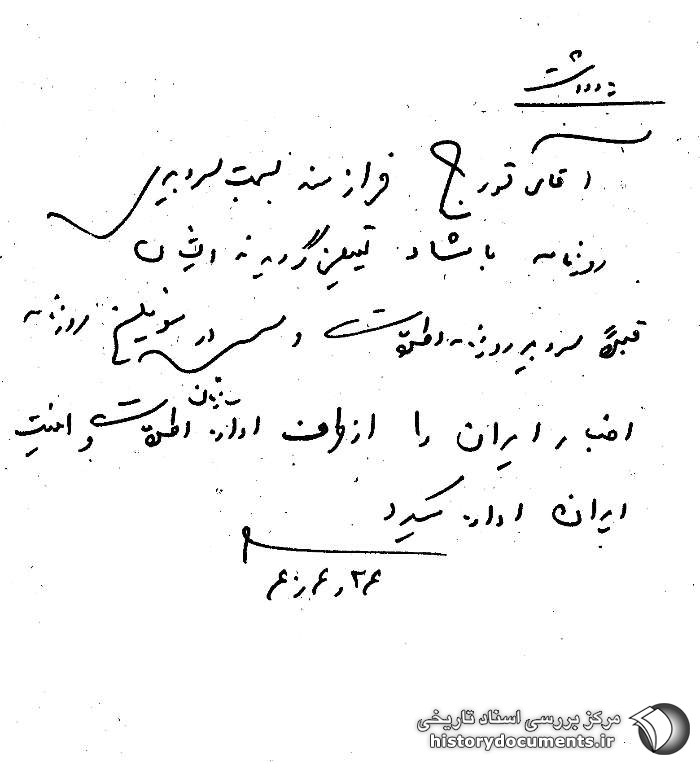 یادداشت
آقای تورج فرازمند بسمت سردبیر
روزنامه بامشاد تعیین گردیده ایشان
قبلاً سردبیر روزنامه اطلاعات و در روزنامه
اخبار ایران را از طرف اداره اطلاعات و امنیت
ایران اداره میکرد
۲۶ر۶ر۴۰
مرکز بررسی اسناد تاریخی
historydocuments.ir